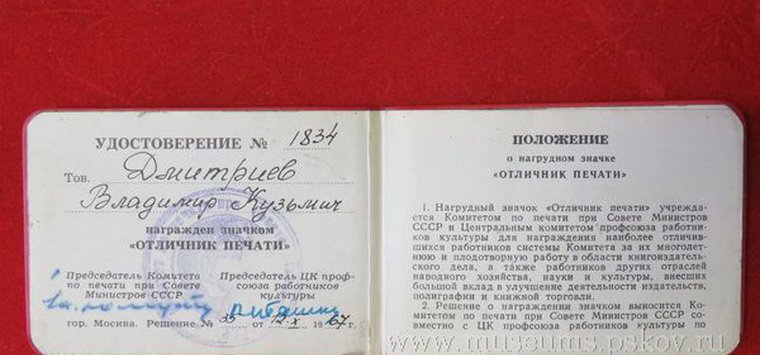 УДОСТОВЕРЕНИЕ № 1834
Тов. Дмитриев
Владимир Кузьмич
награжден значком
«ОТЛИЧНИК ПЕЧАТИ»
Председатель Комитета
по печати при Совете
Министров СССР
Председатель ЦК проф-
союза работников
культуры
гор. Москва. Решение № 35 от 12-X 1967 г.
ПОЛОЖЕНИЕ
о нагрудном значке
«ОТЛИЧНИК ПЕЧАТИ»
1. Нагрудный значок «Отличник печати» учрежда-
ется Комитетом по печати при Совете Министров
СССР и Центральным комитетом профсоюза работни-
ков культуры для награждения наиболее отличив-
шихся работников системы Комитета за их многолет-
нюю и плодотворную работу в области книгоиздатель-
ского дела, а также работников других отраслей
народного хозяйства, науки и культуры, внесших
большой вклад в улучшение деятельности издательств,
полиграфии и книжной торговли.
2. Решение о награждении значком выносится Ко-
митетом по печати при Совете Министров СССР со-
вместно с ЦК профсоюза работников культуры по
www.museums.pskov.ru